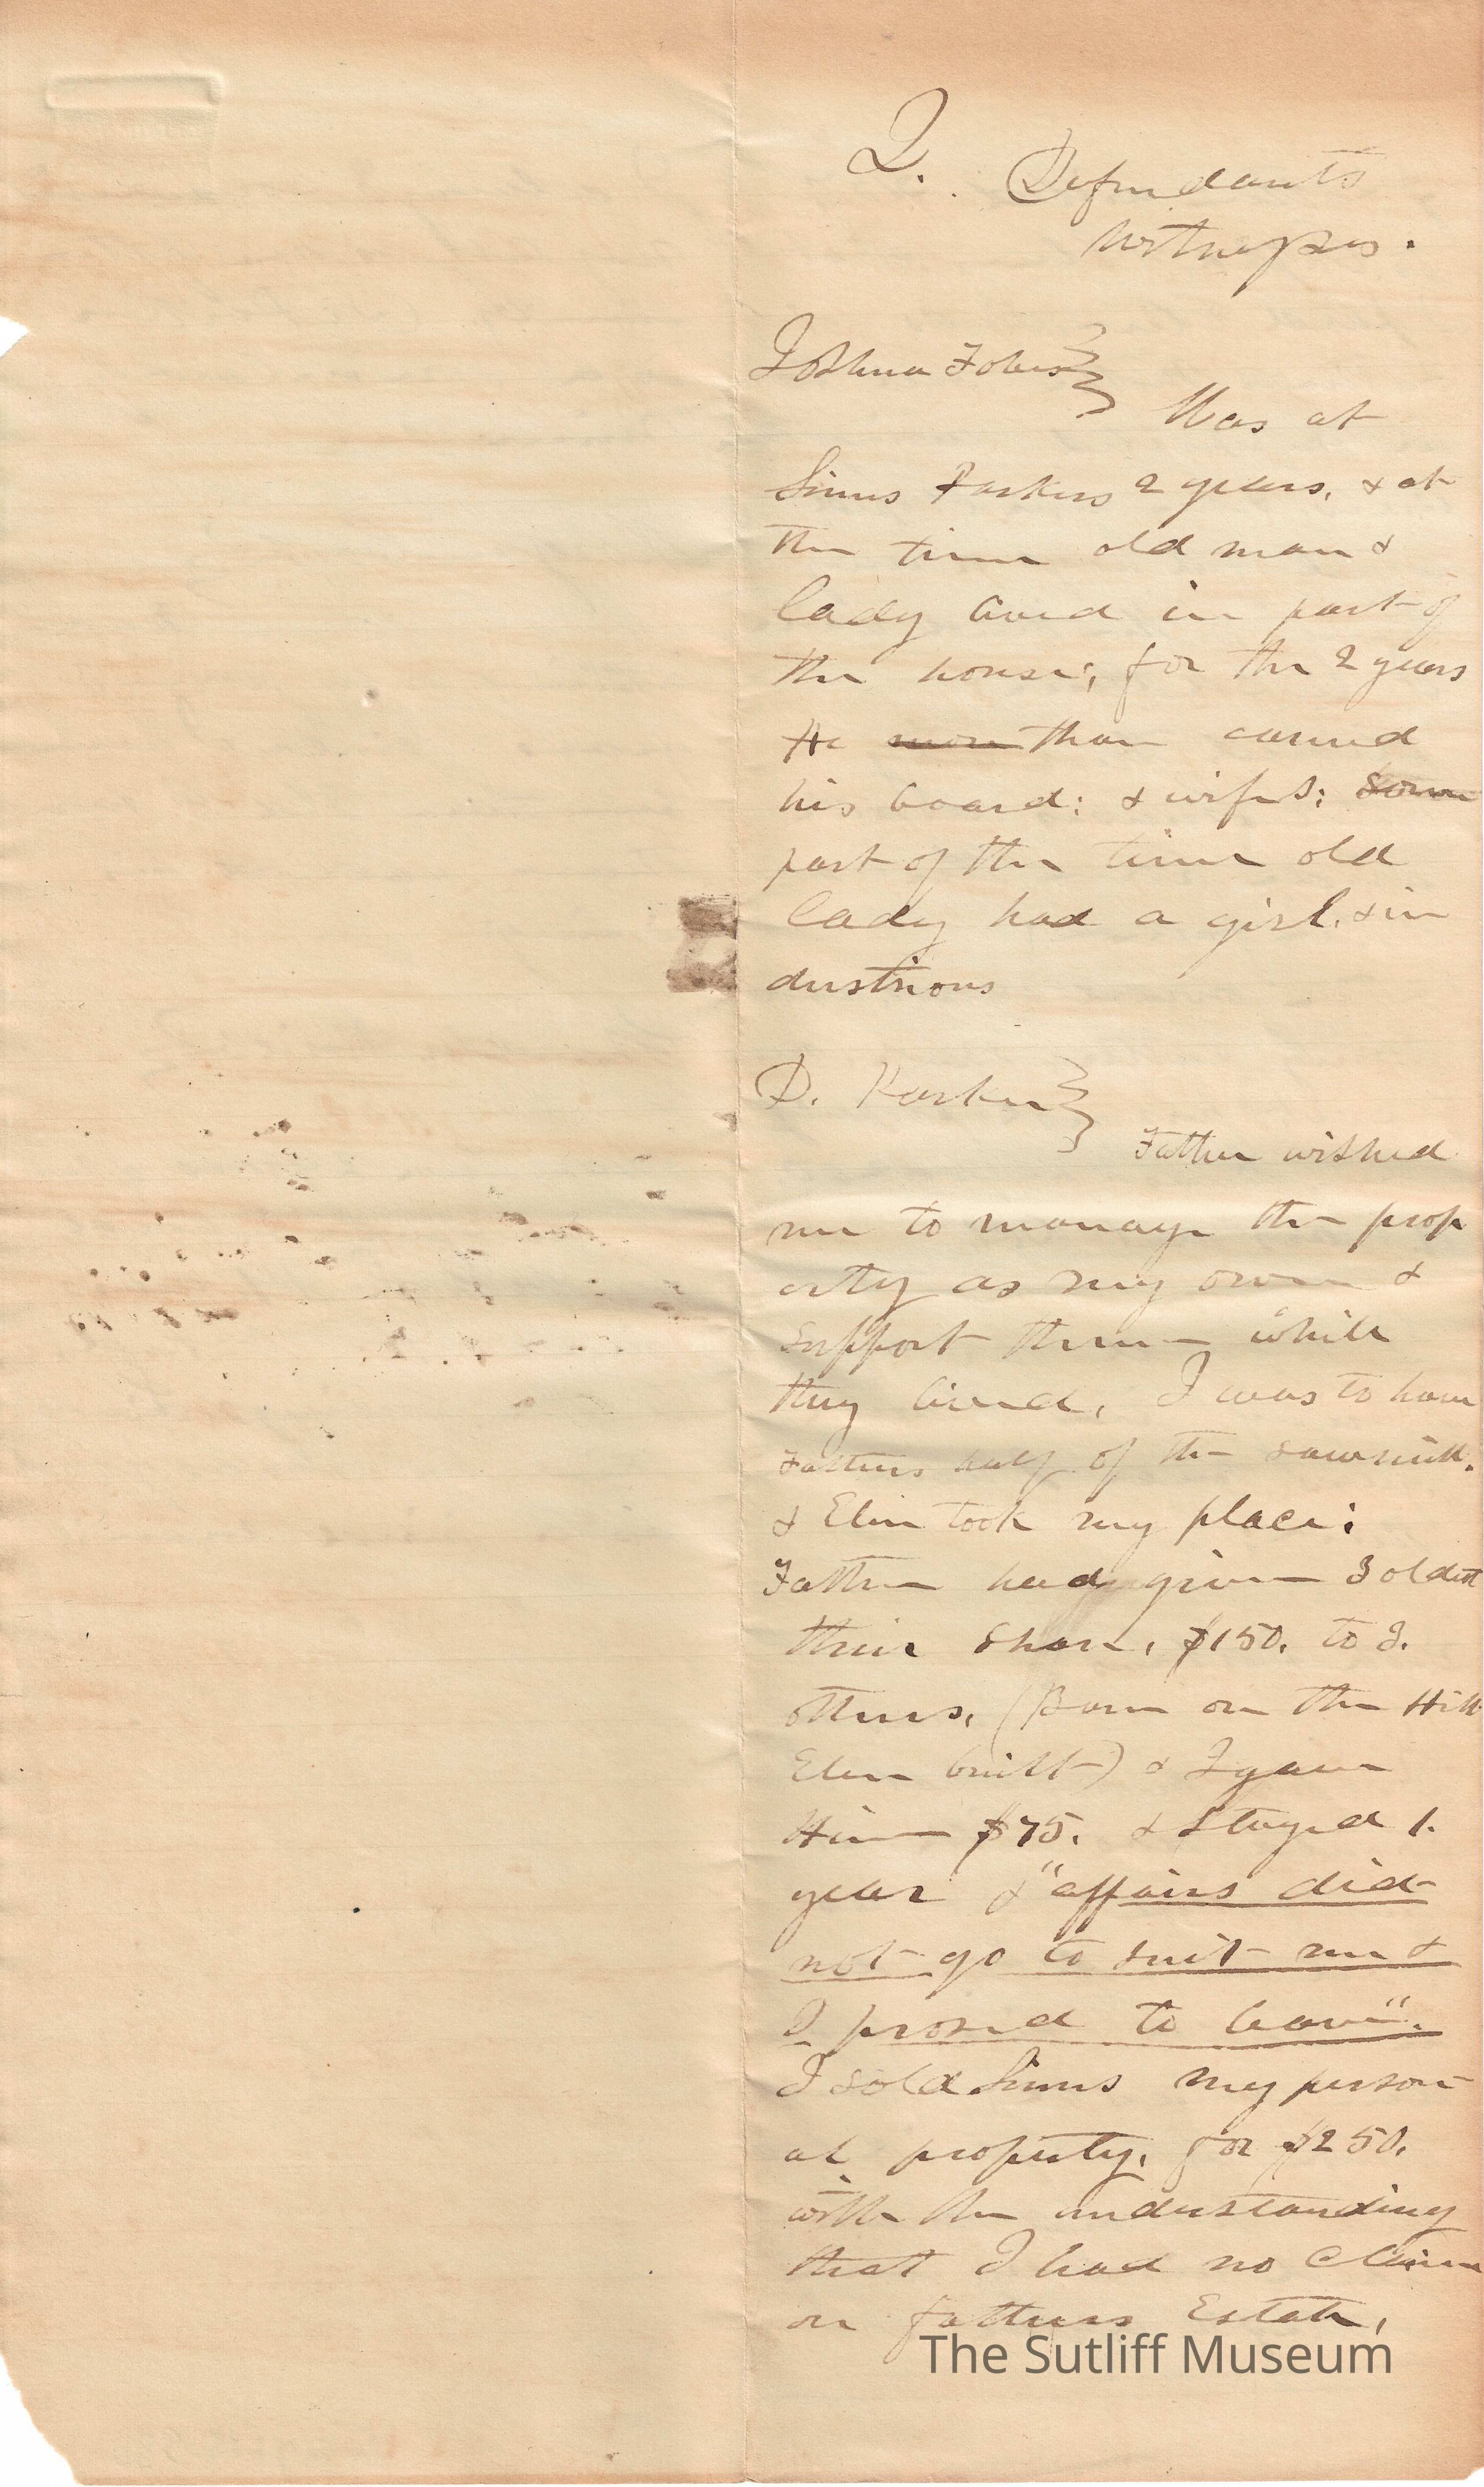 2. Defendants
Witnesses.
Joshua Fobes
Was at
Linus Parkers 2 years, & at
the time old man &
lady lived in part of
the house, for the 2 years
He more than earned
his board; & wifes; Some
part of the time old
lady had a girl. & in
dustrious
D. Parker
Father wished
me to manage the prop
erty as my own &
support them while
they lived, I was to have
Fathers half of the sawmill.
& Eben took my place;
Father had given 3 oldest
their share, $150. to 3.
others, (Barn on the Hill
Eben built) & I gave
Him $75. & stayed 1.
year & "affairs did
not go to suit me &
I prosed to leave".
I sold Linus my person
al property, for $250.
with the understanding
that I had no claim
on fathers Estate,
The Sutliff Museum